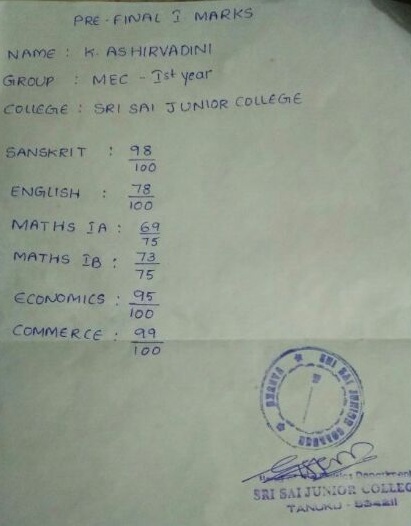 PRE-FINAL I MARKS
NAME : K. ASHIRVADINI
GROUP : MEC - Ist year
COLLEGE : SRI SAI JUNIOR COLLEGE
SANSKRIT : 98
100
ENGLISH : 78
100
MATHS IA : 69
75
MATHS IB : 73
75
ECONOMICS : 95
100
COMMERCE : 99
100
SRI SAI JUNIOR COLLEGE
SRI SAI JUNIOR COLLEG
TANUKU - 534211